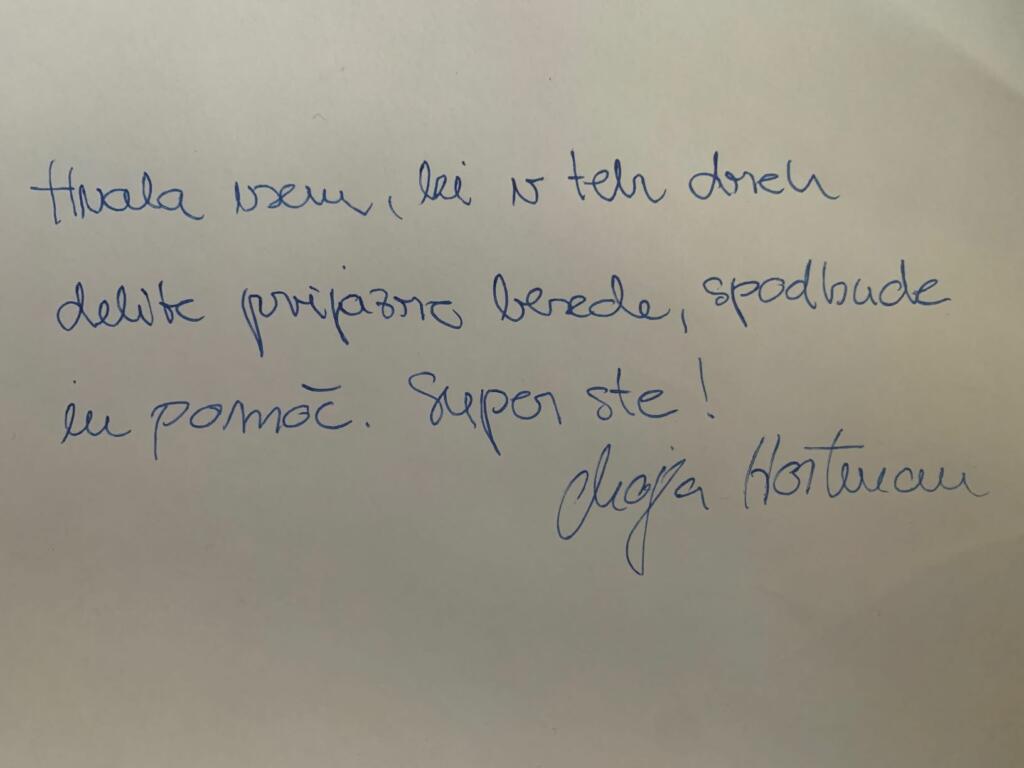 Hvala vsem, ki v teh dneh
delite prijazne besede, spodbude
in pomoč. Super ste!
Maja Hortman